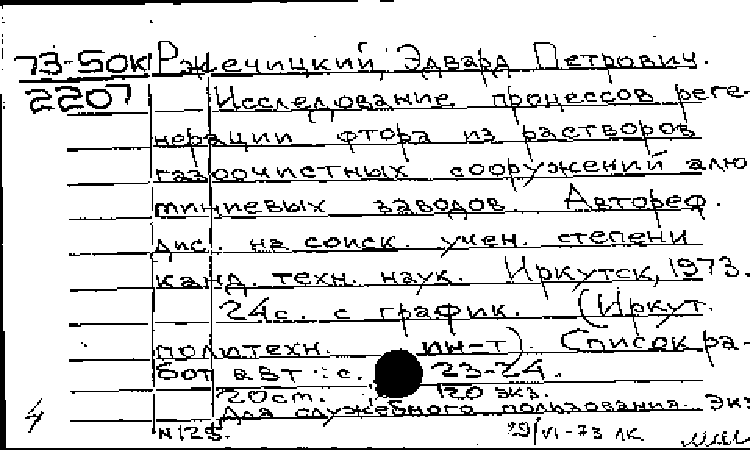 73-50к Ржечицкий, Эдвард Петрович.
2207 Исследование процессов реге-
нерации фтора из растворов
газоочистных сооружений алю
миниевых заводов. Автореф.
дис. на соиск. учен. степени
канд. техн. наук. Иркутск, 1973.
24с. с график. (Иркут.
политехн. ин-т). Список ра-
бот авт.: с. 23-24.
20см. 120 экз.
Для служебного пользования. Экз
N125. 29/VI-73 ЛК
4